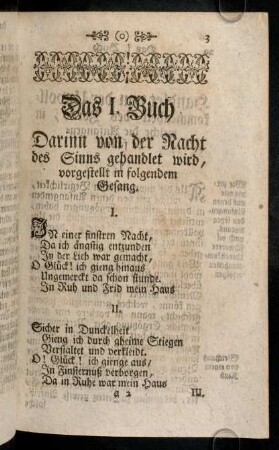 (o) 3
Das I. Buch
Darinn von der Nacht
des Sinns gehandlet wird,
vorgestellt in folgendem
Gesang.
I.
IN einer finstren Nacht,
Da ich ängstig entzunden
In der Lieb war gemacht,
O Glück! ich gieng hinaus
Ungemerckt da schon stunde.
In Ruh und Frid mein Haus
II.
Sicher in Dunckelheit
Gieng ich durch gheime Stiegen
Verstaltet und verkleidt.
O! Glück! ich gienge aus,
In Finsternuß verborgen,
Da in Ruhe war mein Haus
a 2 III.